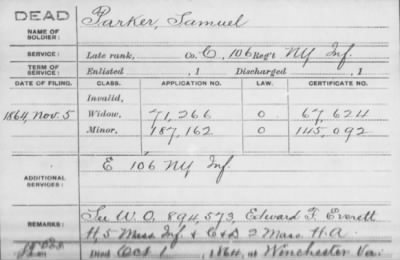 DEAD
NAME OF SOLDIER: Parker, Samuel
SERVICE: Late rank, Co. C, 106 Reg't NY Inf.
TERM OF SERVICE: Enlisted , 1 Discharged , 1
DATE OF FILING. CLASS. APPLICATION NO. LAW. CERTIFICATE NO.
Invalid,
1864, Nov. 5 Widow, 71,266 O 67,624
Minor, 187,162 O 145,092
ADDITIONAL SERVICES: E 106 NY Inf.
REMARKS: See W.O. 894,573, Edward F. Everett
H, 5 Mass Inf. & C & D 2 Mass. H.A.
Died Oct 1, 1864, at Winchester Va.